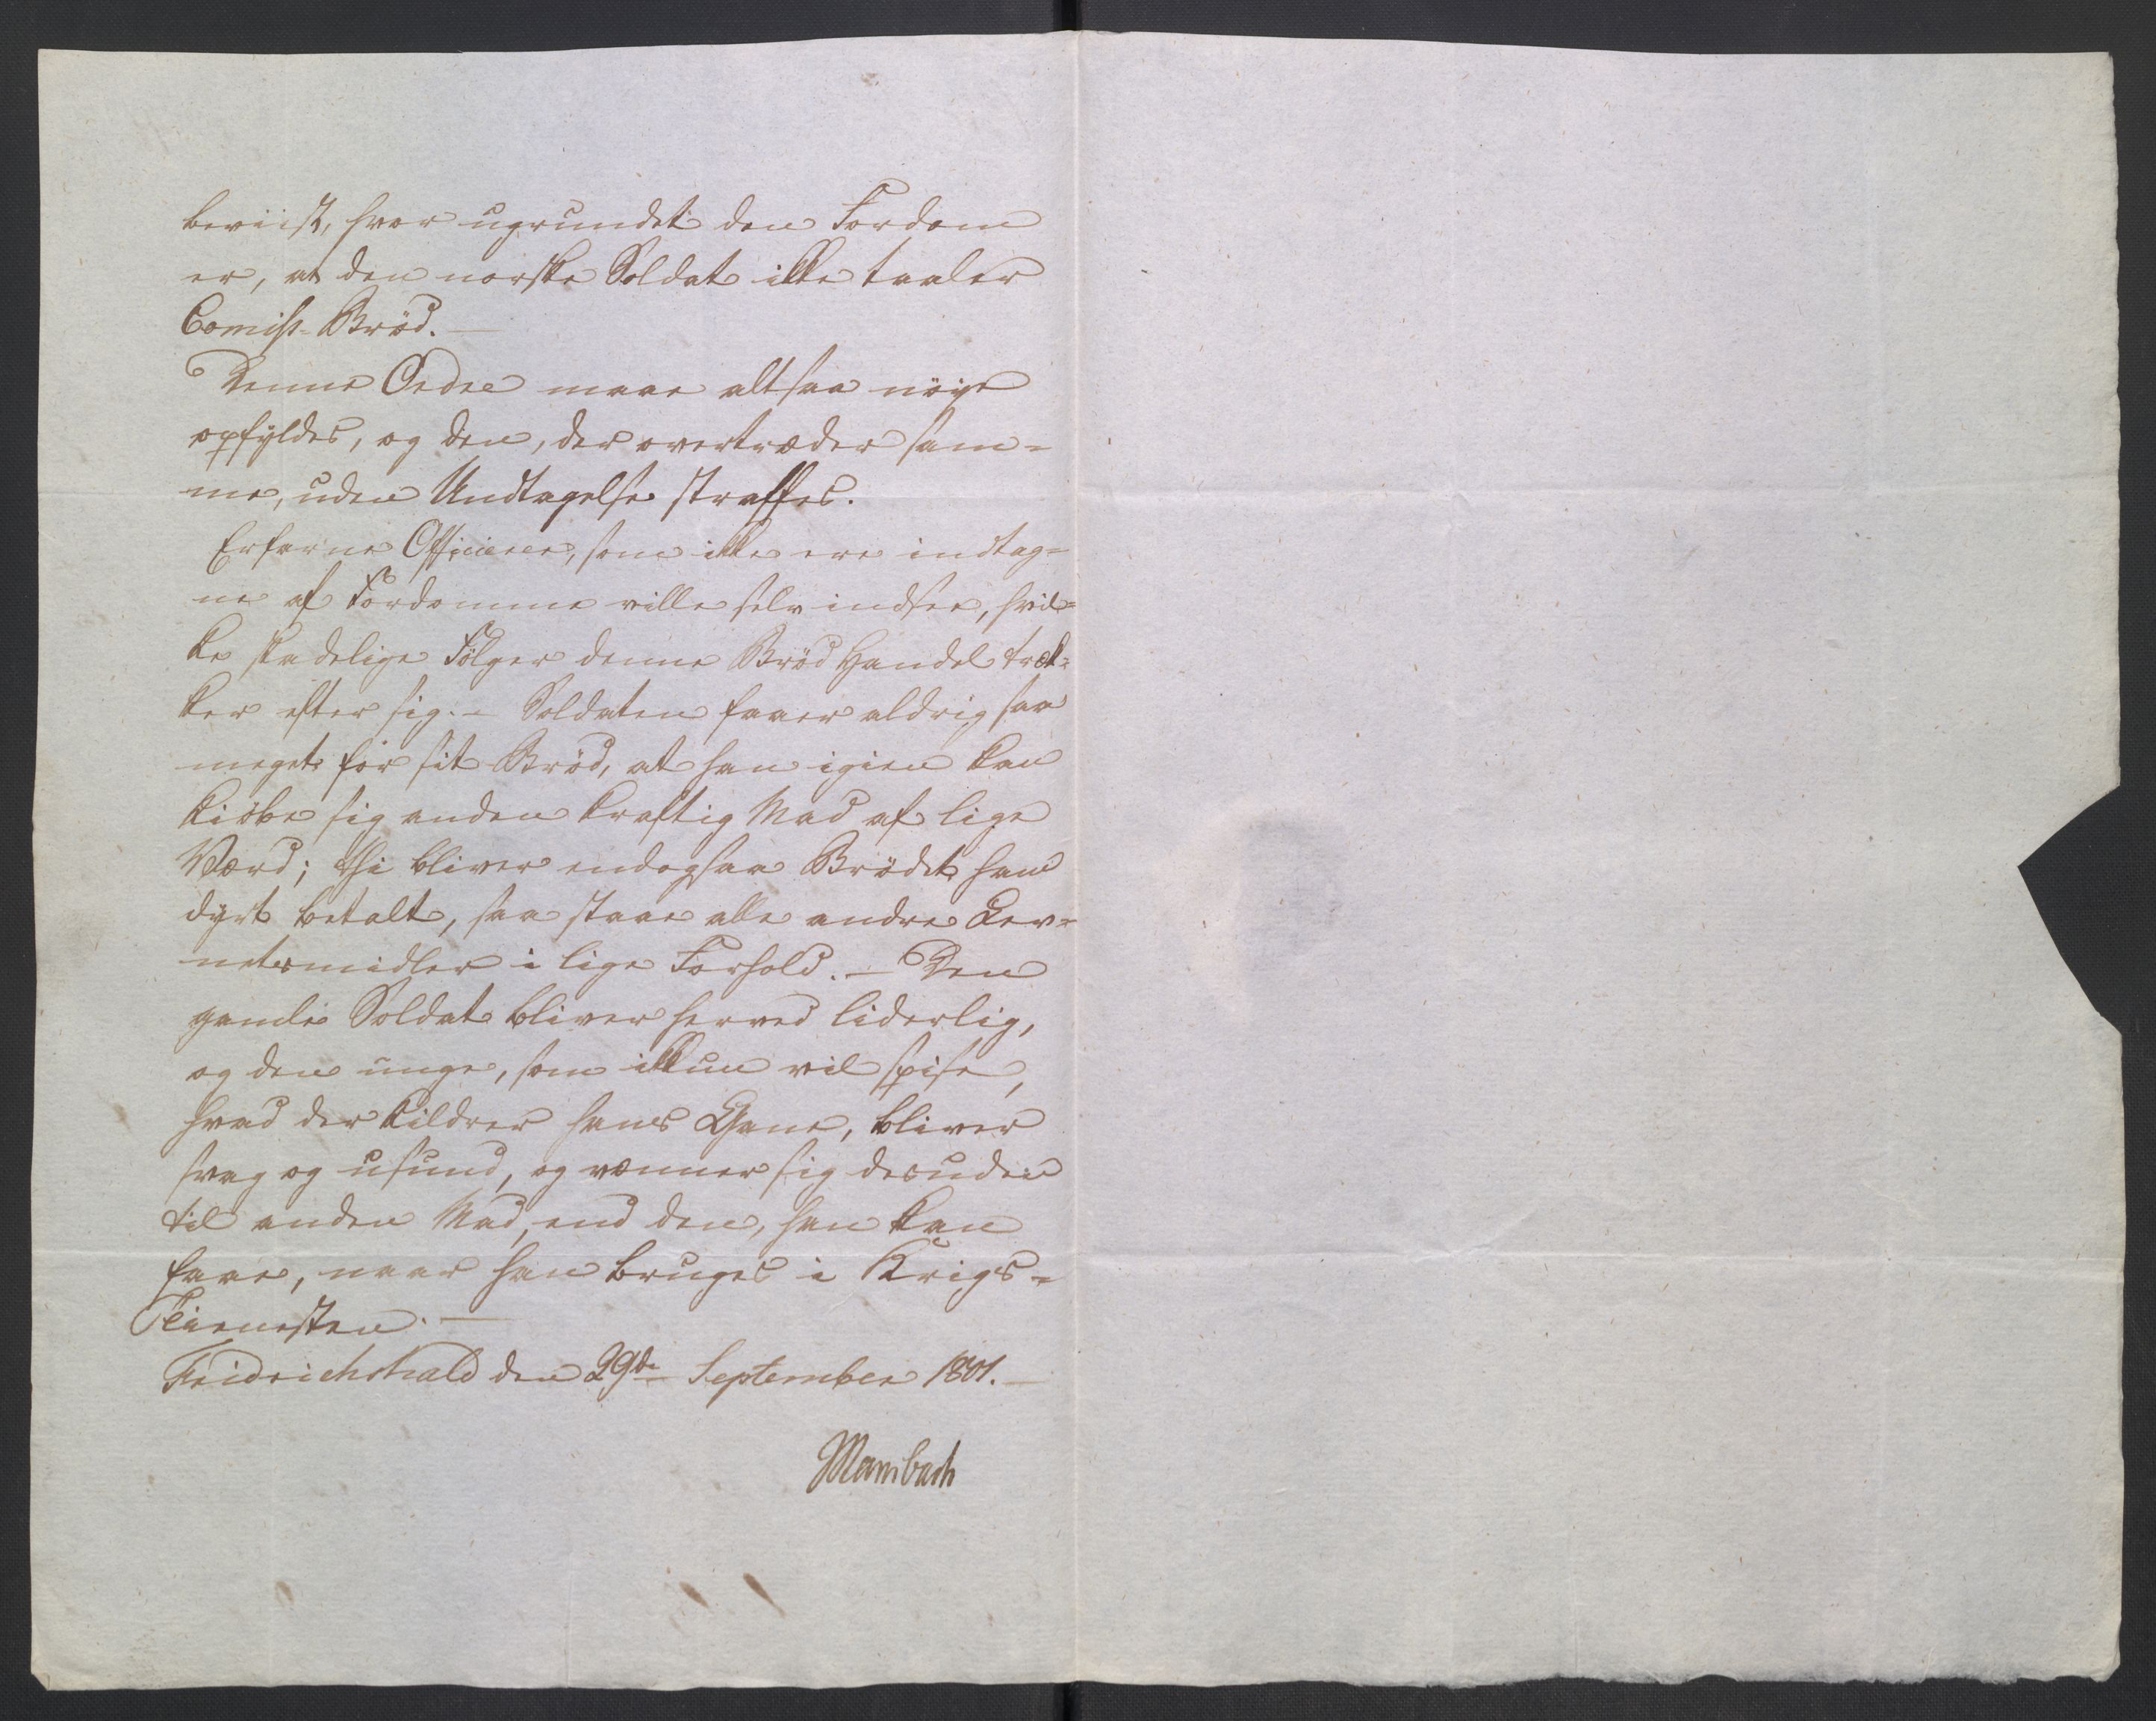 beviist, hvor ugrundet den Fordom
er, at den norske Soldat ikke taaler
Comiss-Brød. —
Denne Ordre maae altsaa nøye
opfyldes, og den, der overtræder sam=
me, uden Undtagelse straffes.
Erfarne Officierer, som ikke ere indtag=
ne af Fordomme ville selv indsee, hvil=
ke skadelige Følger denne Brød Handel træk=
ker efter sig. — Soldaten faaer aldrig saa
meget for sit Brød, at han igien kan
kiøbe sig anden kraftig Mad af lige
Værd; thi bliver endogsaa Brødet ham
dyrt betalt, saa staae alle andre Lev=
netsmidler i lige Forhold. — Den
gamle Soldat bliver herved liderlig,
og den unge, som ikkun vil spise,
hvad der kildrer hans Gane, bliver
svag og usund, og vænner sig desuden
til anden Mad, end den, han kan
faae, naar han bruges i Krigs=
Tienesten. —
Fridrichshald den 29de September 1801. —
Mansbach